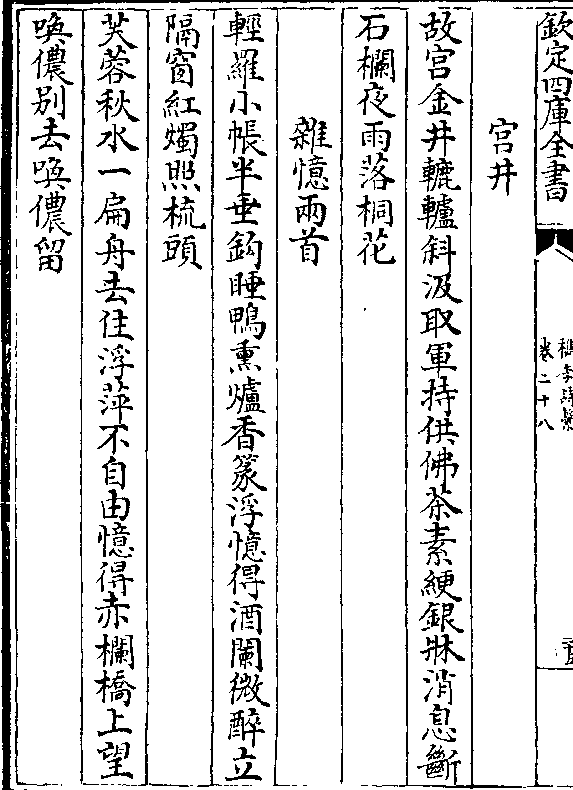 欽定四庫全書
卷二十八
宮井
故宮金井轆轤斜汲取軍持供佛茶素綆銀牀消息斷
石欄夜雨落桐花
雜憶兩首
輕羅小帳半垂鈎睡鴨熏爐香篆浮憶得酒闌微醉立
隔窗紅燭照梳頭
芙蓉秋水一扁舟去住浮萍不自由憶得赤欄橋上望
喚儂别去喚儂留